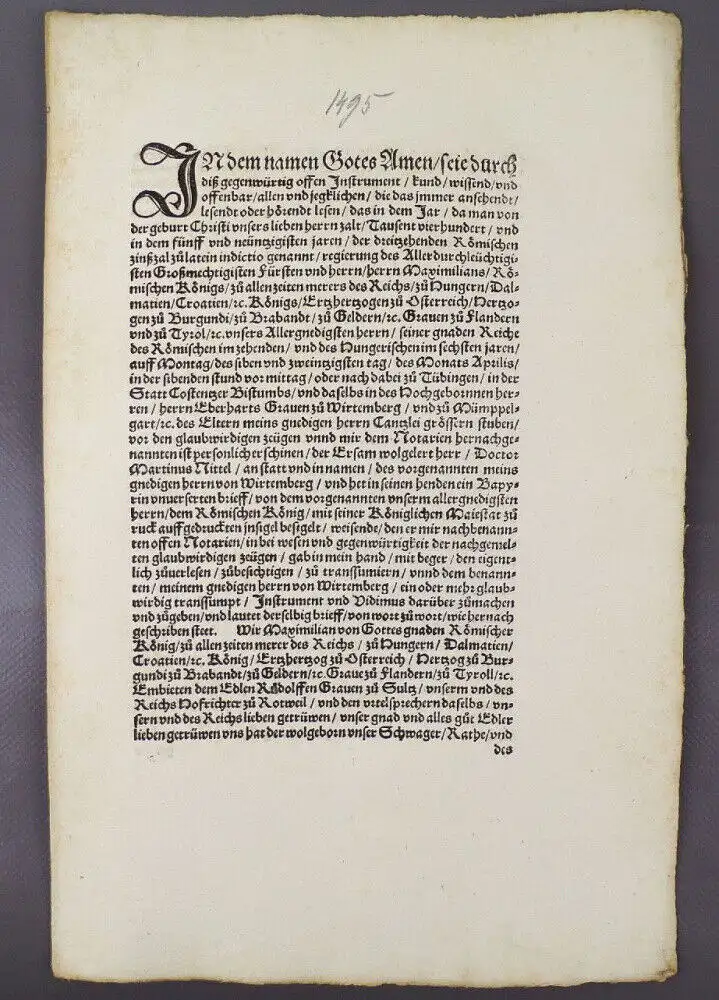 1495
IN dem namen Gotes Amen/seie durch
diß gegenwürtig offen Instrument / kund/wissend/vnd
offenbar/allen vnd jegklichen / die das jmmer ansehendt/
lesendt oder hörendt lesen / das in dem Jar / da man von
der geburt Christi vnsers lieben herrn zalt/Tausent vierhundert / vnd
in dem fünff vnd neüntzigisten jaren / der dreitzehenden Römischen
zinßzal zů latein indictio genannt / regierung des Allerdurchleüchtigi-
sten Großmechtigisten Fürsten vnd herrn/herrn Maximilians/Rö-
mischen Königs/zů allen zeiten merers des Reichs/zů Hungern/Dal-
matien/Croatien/ꝛc. Königs/Ertzhertzogen zů Osterreich/Hertzo-
gen zů Burgundi/zů Brabandt/zů Geldern/ꝛc. Grauen zů Flandern
vnd zů Tyrol/ꝛc. vnsers Allergnedigsten herrn/ seiner gnaden Reiche
des Römischen im zehenden/ vnd des Hungerischen im sechsten jaren/
auff Montag/des siben vnd zweintzigsten tag/ des Monats Aprilis/
in der sibenden stund vor mittag/oder nach dabei zů Tübingen/ in der
Statt Costentzer Bistumbs/vnd daselbs in des Hochgebornnen her-
ren / herrn Eberharts Grauen zů Wirtemberg / vnd zů Mümppel-
gart/ꝛc. des Eltern meins gnedigen herrn Cantzlei grössern stuben/
vor den glaubwirdigen zeügen vnnd mir dem Notarien hernachge-
nannten ist personlich erschinen / der Ersam wolgelert herr / Doctor
Martinus Nittel / an statt vnd in namen / des vorgenannten meins
gnedigen herrn von Wirtemberg / vnd het in seinen henden ein Bapy-
rin vnuerserten brieff/ von dem vorgenannten vnserm allergnedigsten
herrn/dem Römischen König/mit seiner Königlichen Maiestat zů
ruck auff gedruckten insigel besigelt / weisende/den er mir nachbenann-
ten offen Notarien/in bei wesen vnd gegenwürtigkeit der nachgemel-
ten glaubwirdigen zeügen / gab in mein hand/mit beger/ den eigent-
lich zůuerlesen / zůbesichtigen / zů transsumiern/ vnnd dem benann-
ten / meinem gnedigen herrn von Wirtemberg / ein oder mehr glaub-
wirdig transsumpt / Instrument vnd Vidimus darüber zůmachen
vnd zůgeben/vnd lautet derselbig brieff/von wort zů wort/wie hernach
geschriben steet. Wir Maximilian von Gottes gnaden Römischer
König/zů allen zeiten merer des Reichs / zů Hungern/ Dalmatien/
Croatien/ꝛc. König / Ertzhertzog zů Osterreich / Hertzog zů Bur-
gundi zů Brabandt/zů Geldern/ꝛc. Graue zů Flandern/zů Tyroll/ꝛc.
Embieten dem Edlen Růdolffen Grauen zů Sultz / vnserm vnd des
Reichs Hofrichter zů Rotweil / vnd den vrtelsprechern daselbs / vn-
sern vnd des Reichs lieben getrüwen / vnser gnad vnd alles gůt Edler
lieben getrüwen vns hat der wolgeborn vnser Schwager/Rathe/vnd
des